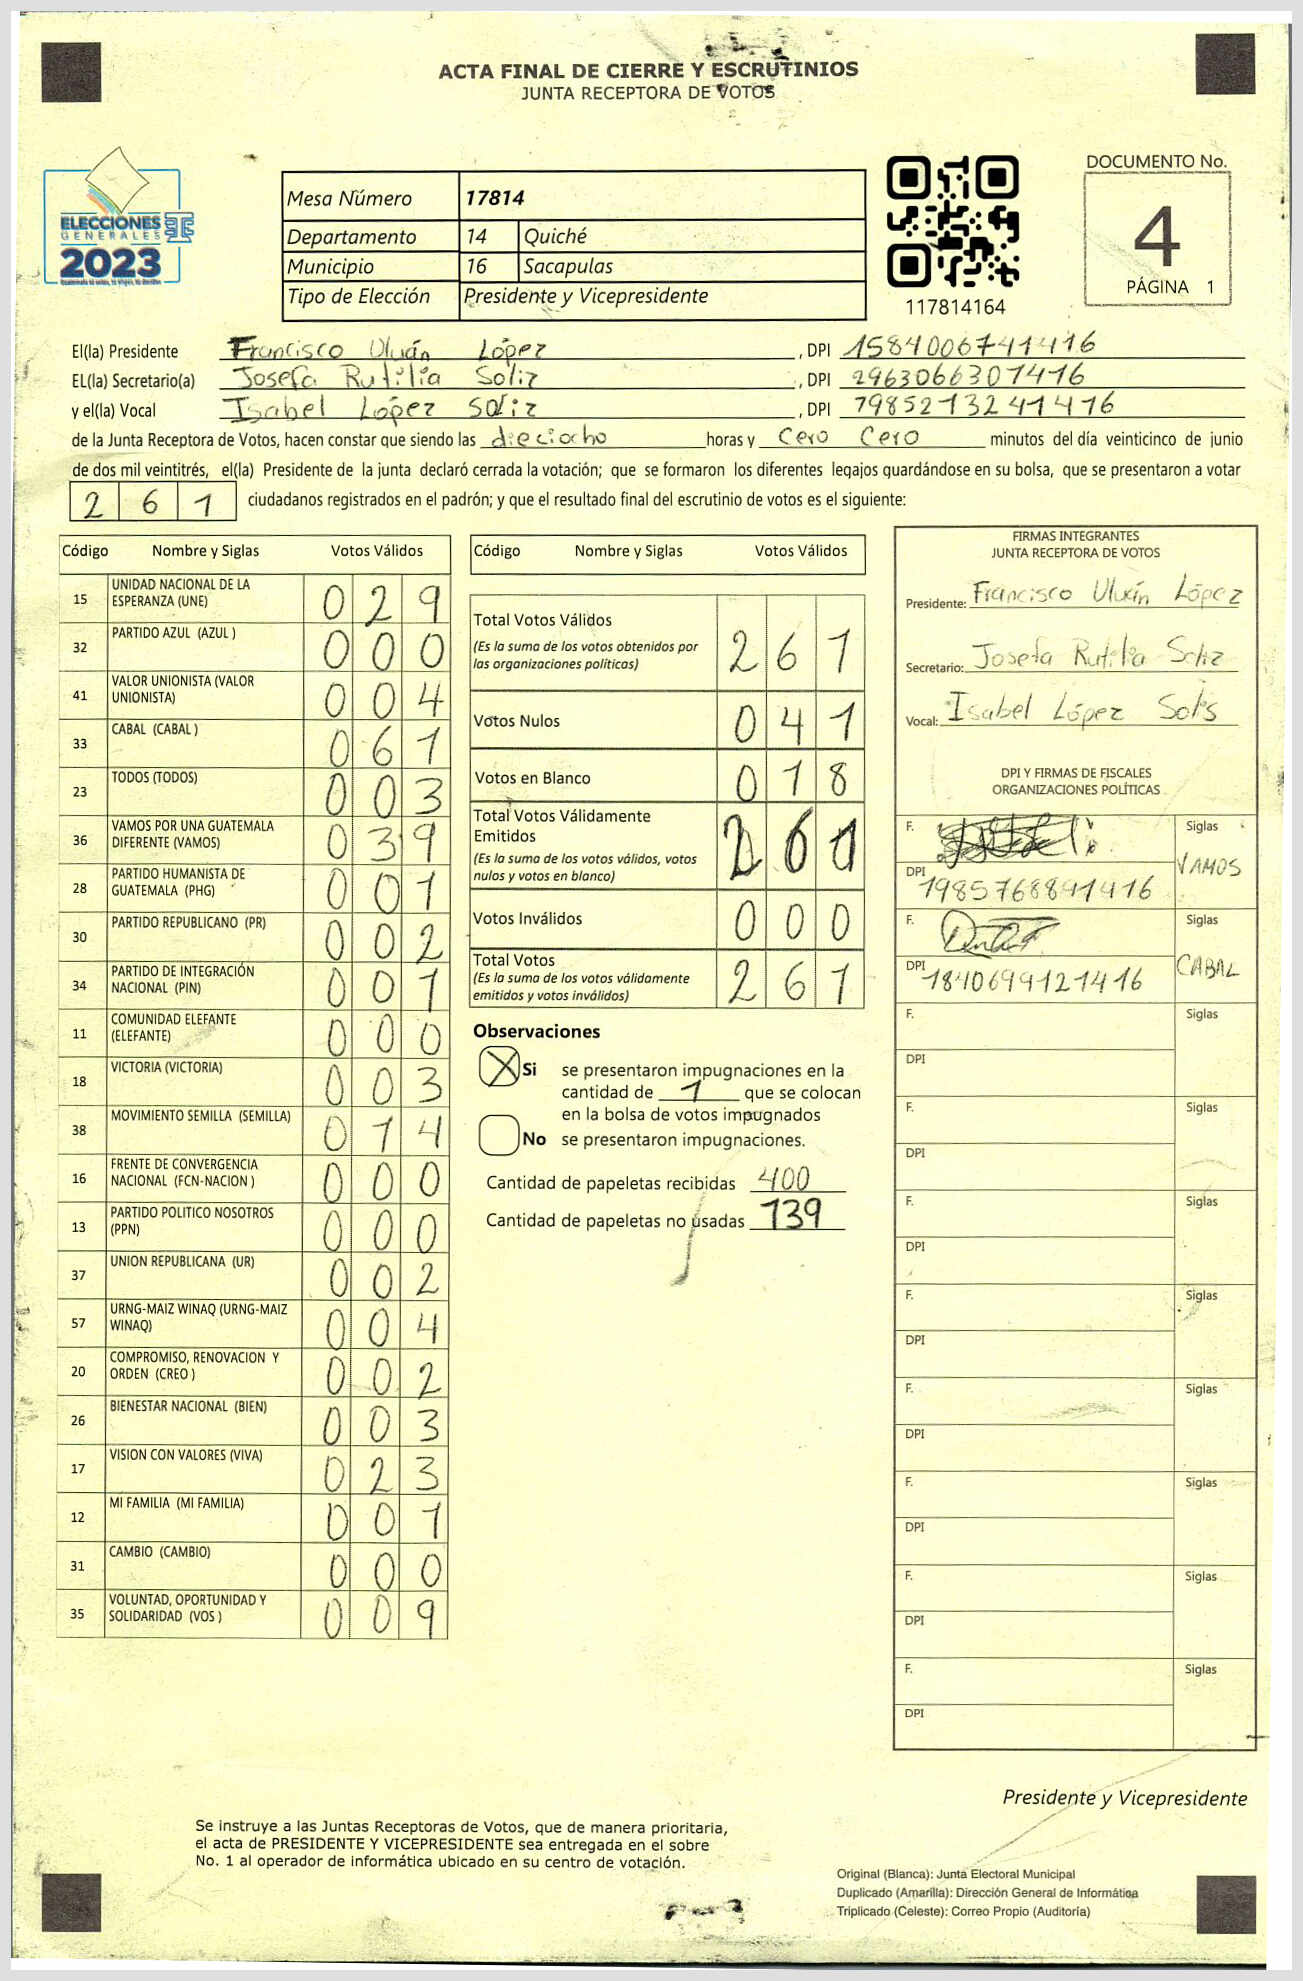 ACTA FINAL DE CIERRE Y ESCRUTINIOS
JUNTA RECEPTORA DE VOTOS
ELECCIONES
GENERALES
2023
Mesa Número 17814
Departamento 14 Quiché
Municipio 16 Sacapulas
Tipo de Elección Presidente y Vicepresidente
117814164
DOCUMENTO No.
4
PÁGINA 1
El(la) Presidente Francisco Uluán López, DPI 1584006741416
EL(la) Secretario(a) Josefa Rutilia Soliz, DPI 2963066301416
y el(la) Vocal Isabel López Soliz, DPI 7985213241416
de la Junta Receptora de Votos, hacen constar que siendo las dieciocho horas y Cero Cero minutos del día veinticinco de junio
de dos mil veintitrés, el(la) Presidente de la junta declaró cerrada la votación; que se formaron los diferentes legajos guardándose en su bolsa, que se presentaron a votar
261 ciudadanos registrados en el padrón; y que el resultado final del escrutinio de votos es el siguiente:
Código Nombre y Siglas Votos Válidos
15 UNIDAD NACIONAL DE LA
ESPERANZA (UNE) 029
32 PARTIDO AZUL (AZUL ) 000
41 VALOR UNIONISTA (VALOR
UNIONISTA) 004
33 CABAL (CABAL ) 061
23 TODOS (TODOS) 003
36 VAMOS POR UNA GUATEMALA
DIFERENTE (VAMOS) 039
28 PARTIDO HUMANISTA DE
GUATEMALA (PHG) 001
30 PARTIDO REPUBLICANO (PR) 002
34 PARTIDO DE INTEGRACIÓN
NACIONAL (PIN) 001
11 COMUNIDAD ELEFANTE
(ELEFANTE) 000
18 VICTORIA (VICTORIA) 003
38 MOVIMIENTO SEMILLA (SEMILLA) 014
16 FRENTE DE CONVERGENCIA
NACIONAL (FCN-NACION ) 000
13 PARTIDO POLITICO NOSOTROS
(PPN) 000
37 UNION REPUBLICANA (UR) 002
57 URNG-MAIZ WINAQ (URNG-MAIZ
WINAQ) 004
20 COMPROMISO, RENOVACION Y
ORDEN (CREO ) 002
26 BIENESTAR NACIONAL (BIEN) 003
17 VISION CON VALORES (VIVA) 023
12 MI FAMILIA (MI FAMILIA) 001
31 CAMBIO (CAMBIO) 000
35 VOLUNTAD, OPORTUNIDAD Y
SOLIDARIDAD (VOS ) 009
Código Nombre y Siglas Votos Válidos
Total Votos Válidos 261
(Es la suma de los votos obtenidos por
las organizaciones políticas)
Votos Nulos 041
Votos en Blanco 018
Total Votos Válidamente
Emitidos 261
(Es la suma de los votos válidos, votos
nulos y votos en blanco)
Votos Inválidos 000
Total Votos 261
(Es la suma de los votos válidamente
emitidos y votos inválidos)
Observaciones
X Si se presentaron impugnaciones en la
cantidad de 1 que se colocan
en la bolsa de votos impugnados
No se presentaron impugnaciones.
Cantidad de papeletas recibidas 400
Cantidad de papeletas no usadas 139
FIRMAS INTEGRANTES
JUNTA RECEPTORA DE VOTOS
Presidente: Francisco Uluán López
Secretario: Josefa Rutilia Soliz
Vocal: Isabel López Solis
DPI Y FIRMAS DE FISCALES
ORGANIZACIONES POLÍTICAS
F. Siglas
VAMOS
DPI 1985768891416
F. Siglas
CABAL
DPI 1840699121416
F. Siglas
DPI
F. Siglas
DPI
F. Siglas
DPI
F. Siglas
DPI
F. Siglas
DPI
F. Siglas
DPI
F. Siglas
DPI
F. Siglas
DPI
Presidente y Vicepresidente
Se instruye a las Juntas Receptoras de Votos, que de manera prioritaria,
el acta de PRESIDENTE Y VICEPRESIDENTE sea entregada en el sobre
No. 1 al operador de informática ubicado en su centro de votación.
Original (Blanca): Junta Electoral Municipal
Duplicado (Amarilla): Dirección General de Informática
Triplicado (Celeste): Correo Propio (Auditoría)